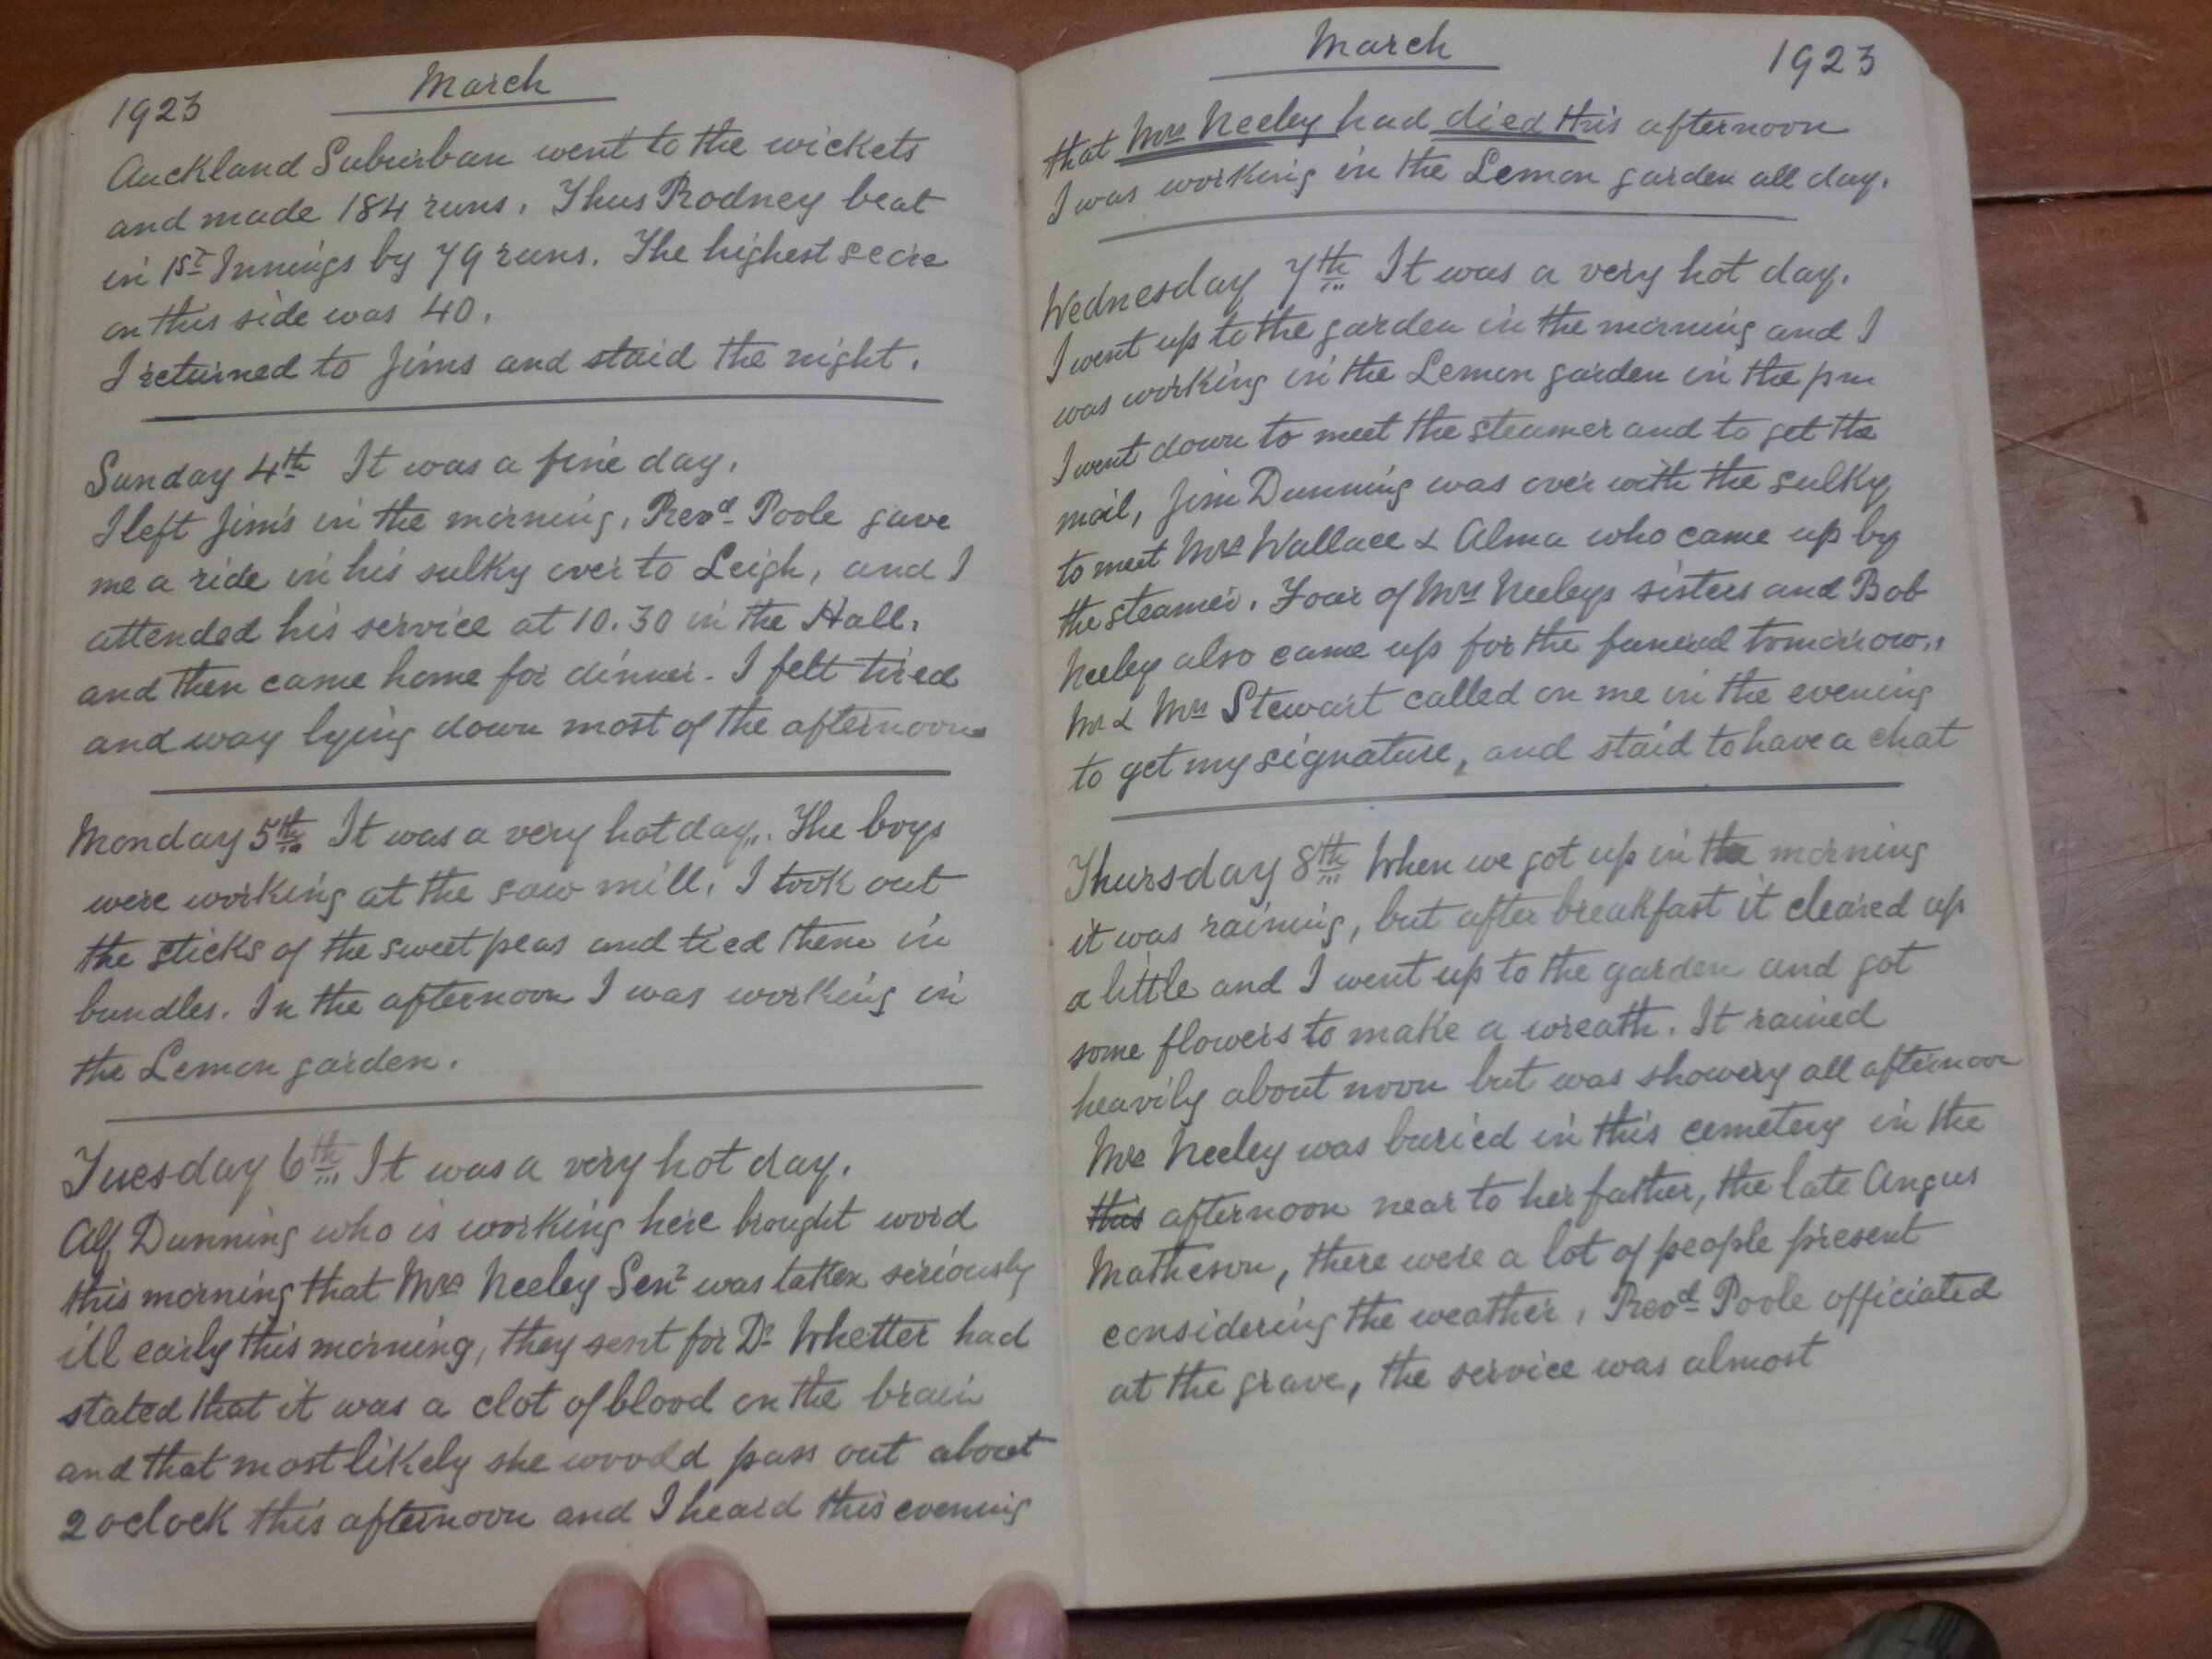 1923 March
Auckland Suburban went to the wickets
and made 184 runs. Thus Rodney beat
in 1st Innings by 79 runs. The highest score
on this side was 40.
I returned to Jims and staid the night.
Sunday 4th It was a fine day.
I left Jim's in the morning. Revd Poole gave
me a ride in his sulky over to Leigh, and I
attended his service at 10.30 in the Hall.
and then came home for dinner. I felt tired
and way lying down most of the afternoon
Monday 5th It was a very hot day. The boys
were working at the saw mill. I took out
the sticks of the sweet peas and tied them in
bundles. In the afternoon I was working in
the Lemon garden.
Tuesday 6th It was a very hot day.
Alf Dunning who is working here brought word
this morning that Mrs Neeley Senr was taken seriously
ill early this morning, they sent for Dr Whetter had
stated that it was a clot of blood on the brain
and that most likely she woodd pass out about
2 oclock this afternoon and I heard this evening
March 1923
that Mrs Neeley had died this afternoon
I was working in the Lemon garden all day.
Wednesday 7th It was a very hot day.
I went up to the garden in the morning and I
was working in the Lemon garden in the pm
I went down to meet the steamer and to get the
mail, Jim Dunning was over with the sulky
to meet Mrs Wallace & Alma who came up by
the steamer. Four of Mrs Neeleys sisters and Bob
Neeley also came up for the funeral tomorrow.
Mr & Mrs Stewart called on me in the evening
to get my signature, and staid to have a chat
Thursday 8th When we got up in the morning
it was raining, but after breakfast it cleared up
a little and I went up to the garden and got
some flowers to make a wreath. It rained
heavily about noon but was showery all afternoon
Mrs Neeley was buried in this cemetery in the
this afternoon near to her father, the late Angus
Matheson, there were a lot of people present
considering the weather. Revd Poole officiated
at the grave, the service was almost